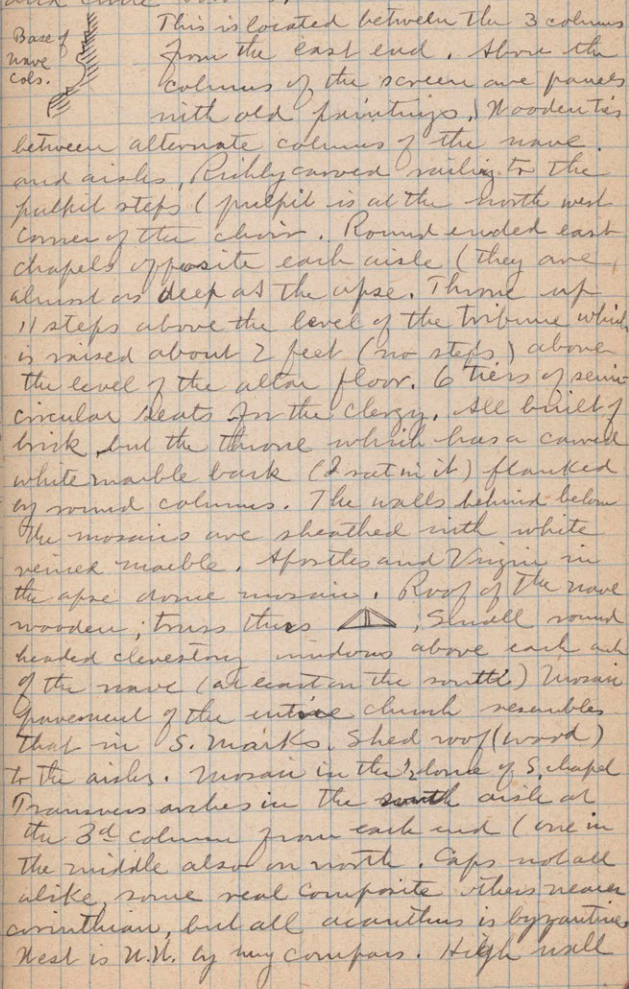 Base of
nave
cols.
This is located between the 3 columns
from the east end. Above the
columns of the screen are panels
with old paintings. Wooden ties
between alternate columns of the nave.
and aisles, Richly carved railing to the
pulpit steps (pulpit is at the north west
corner of the choir. Round ended east
chapels opposite each aisle (they are
almost as deep as the apse. Throne up
11 steps above the level of the tribune which
is raised about 2 feet (no steps) above
the level of the altar floor. 6 tiers of semi-
circular seats for the clergy. All built of
brick, but the throne which has a carved
white marble back (I sat in it) flanked
by round columns. The walls behind below
the mosaics are sheathed with white
veined marble. Apostles and Virgin in
the apse dome mosaic. Roof of the nave
wooden; truss thus , Small round
headed clerestory windows above each arch
of the nave (at least on the south) Mosaic
pavement of the entire church resembles
that in S. Marks. Shed roof (wood)
to the aisles. Mosaic in the ½ dome of S. chapel
Transverse arches in the south aisle at
the 3d column from each end (one in
the middle also on north. Caps not all
alike, some real Composite others nearer
corinthian, but all acanthus is byzantine.
West is N.W. by my compass. High wall